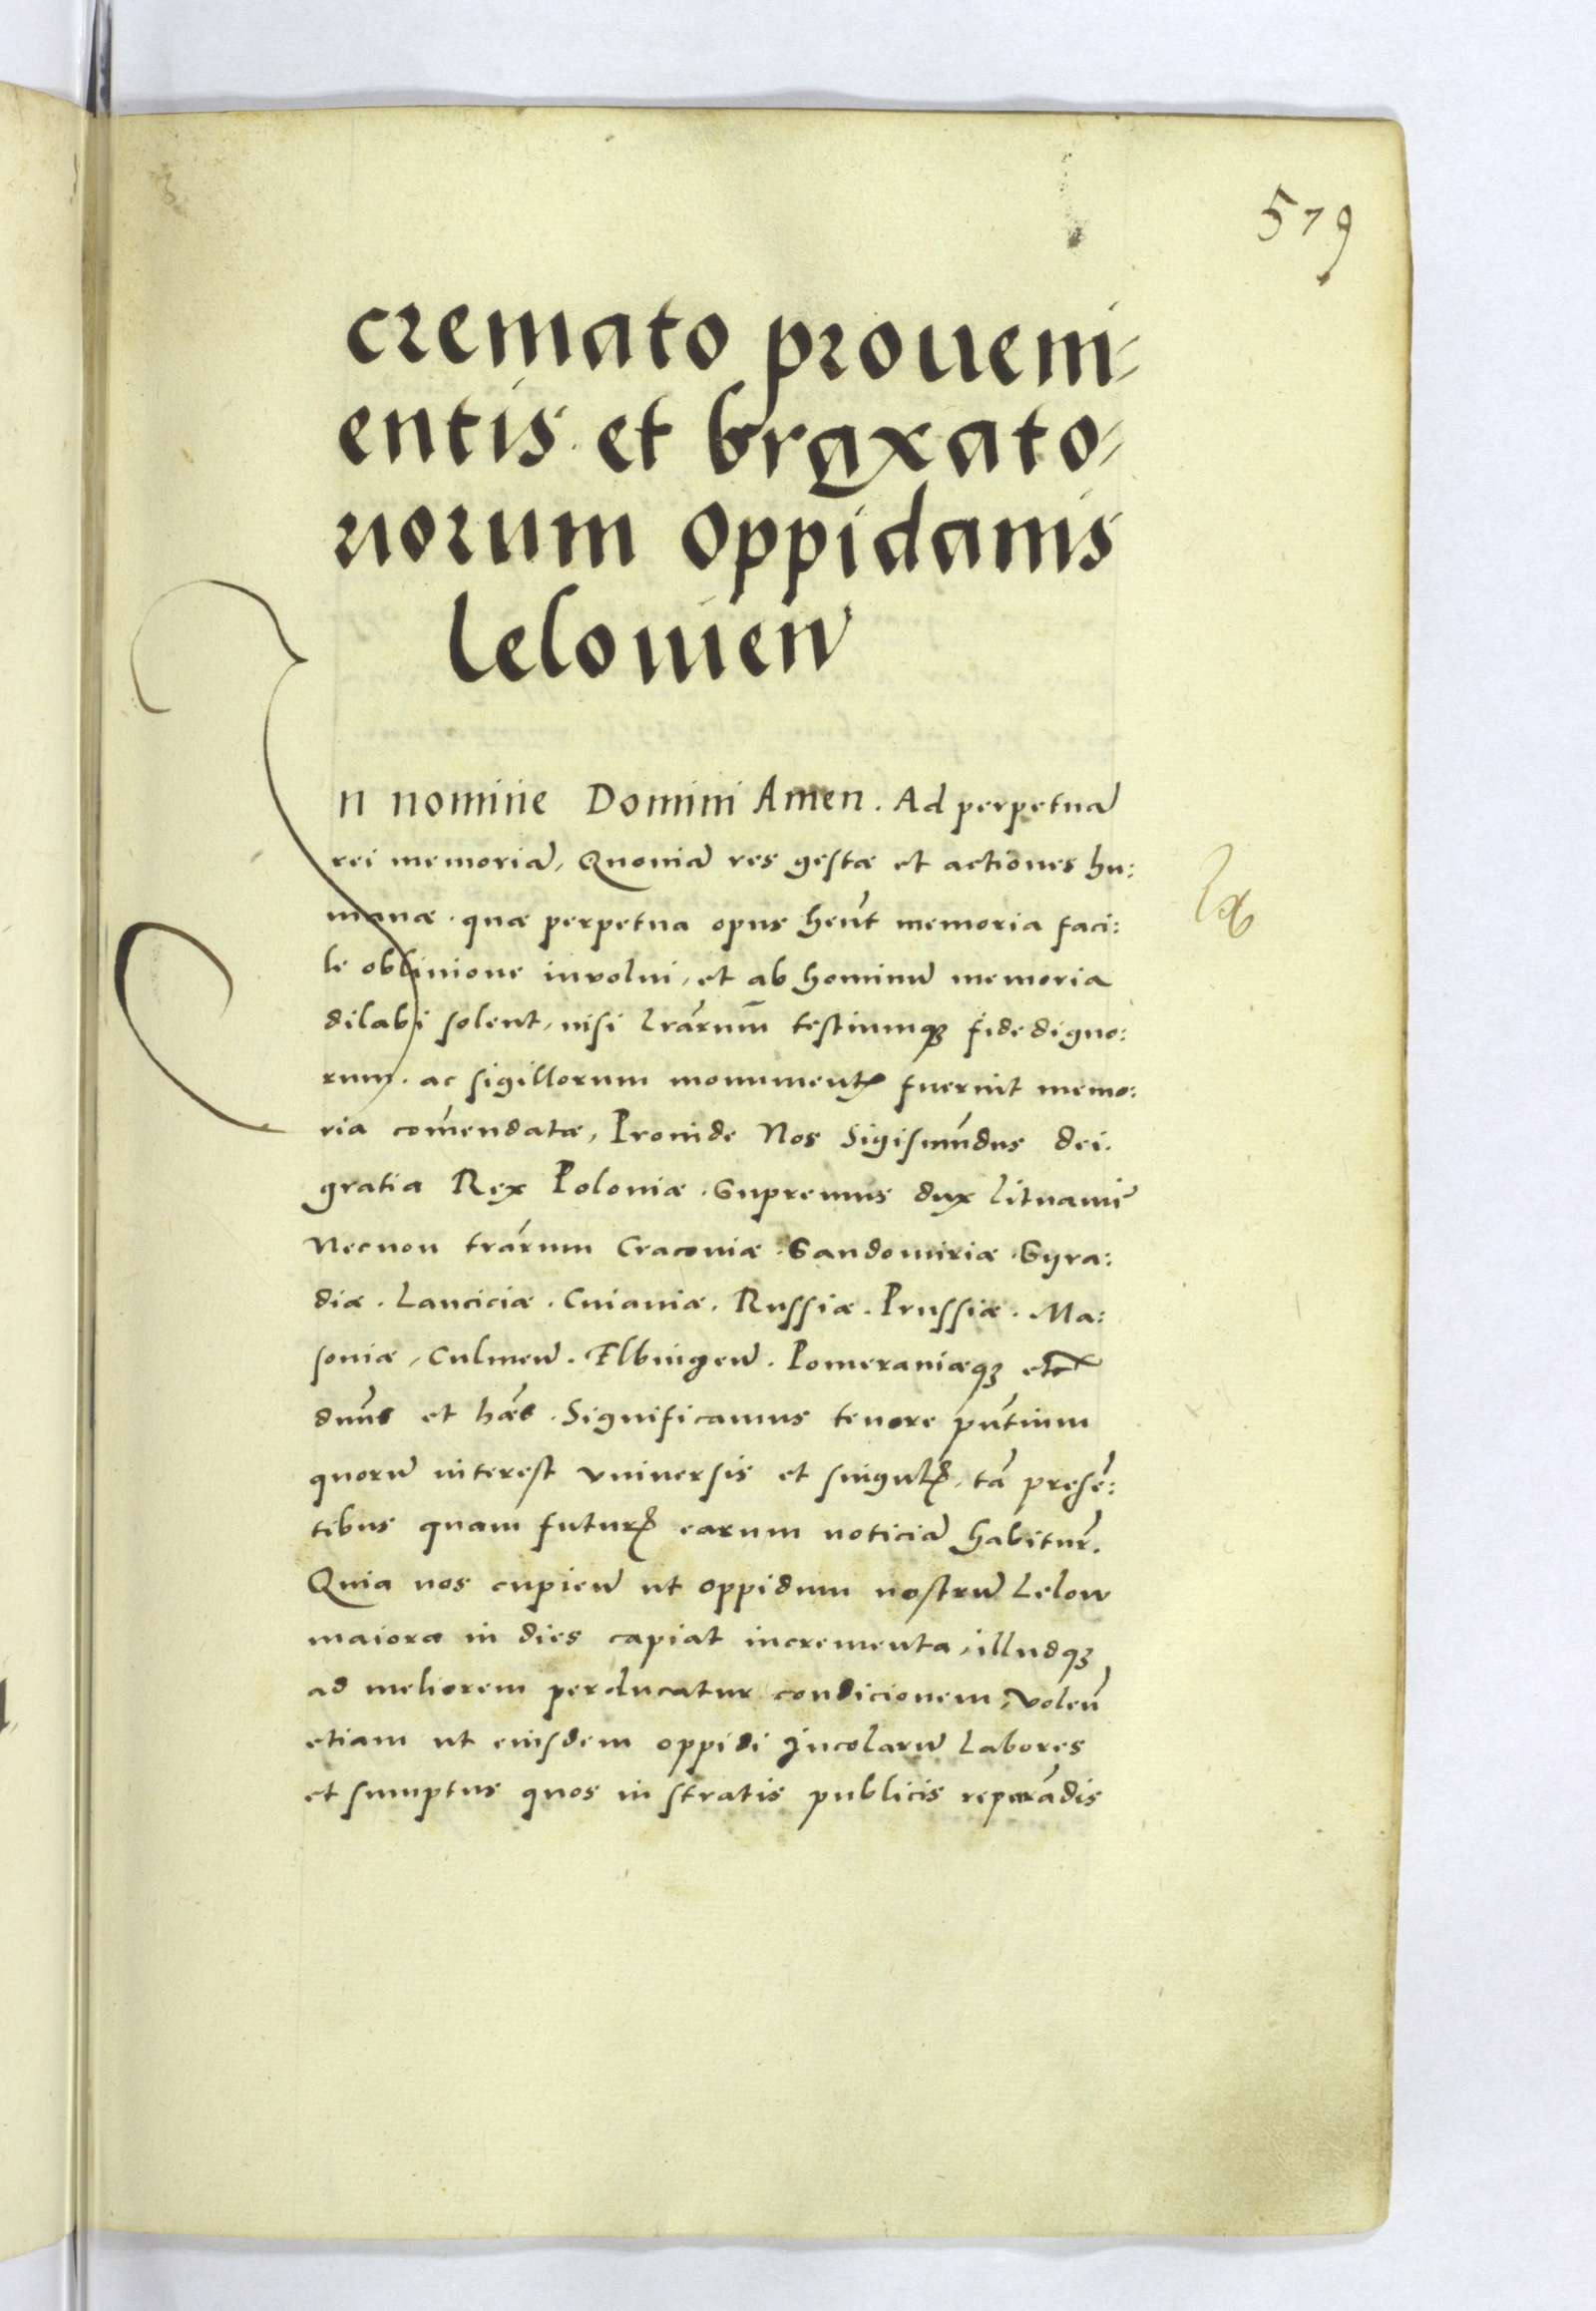 579
cremato proueni-
entis et braxato-
riorum oppidanis
Lelouien̄
In nomine Domini Amen. Ad perpetuā
rei memoriā, Quoniā res gestæ et actiones hu:
manæ. quæ perpetua opus hēnt memoria faci:
le obliuione inuolui, et ab hominū memoria
dilabi solent, nisi lrārum testiumqꝫ fide digno:
rum. ac sigillorum monumentꝭ fuerint memo:
ria com̄endatæ, Proinde Nos Sigismūndus dei.
gratia Rex Poloniæ. Supremus dux lituaniē
Necnon trārum Cracouiæ. Sandomiriæ. Syra:
diæ. Lanciciæ. Cuiauiæ. Russiæ. Prussiæ. Ma:
souiæ, Culmen̄. Elbingen̄. Pomeraniæqꝫ etc̄
dnūs et hǣs. Significamus tenore pn̄tium
quorū interest vniuersis et singulꝭ, tā presē:
tibus quam futurꝭ earum noticiā habitur̄.
Quia nos cupien̄ ut oppidum nostrū Lelow
maiora in dies capiat incrementa, illudqꝫ
ad meliorem perducatur condicionem, volen̄
etiam ut eiusdem oppidi Incolarū labores
et sumptus quos in stratis publicis reparādis